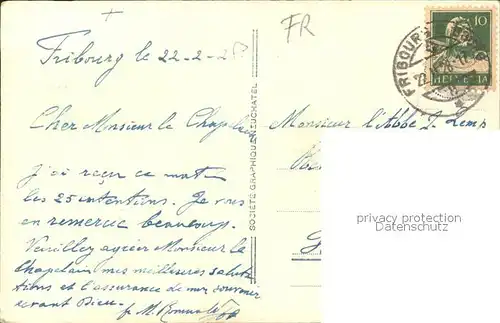 FR
10
HELVETIA
FRIBOURG
Fribourg le 22-2-28
Cher Monsieur le Chapelain
J'ai reçu ce matin
les 25 intentions. Je vous
en remercie beaucoup.
Veuillez agréer Monsieur le
Chapelain mes meilleures saluta
tions et l'assurance de mon souvenir
devant Dieu.
SOCIÉTÉ GRAPHIQUE NEUCHATEL
Monsieur l'Abbé J. Lemp
privacy protection
Datenschutz